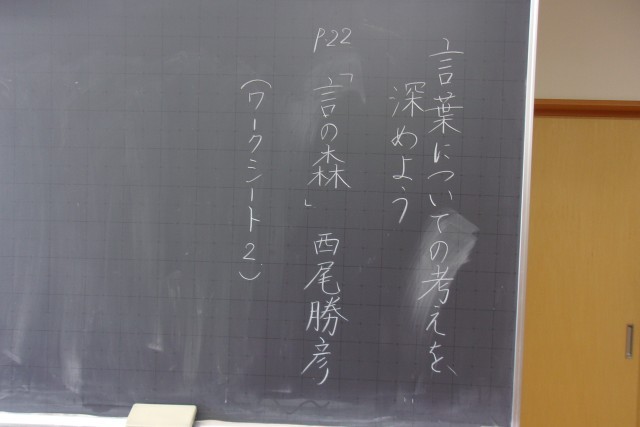 言葉についての考えを、
深めよう
P.22
「言の森」 西尾勝彦
(ワークシート2)